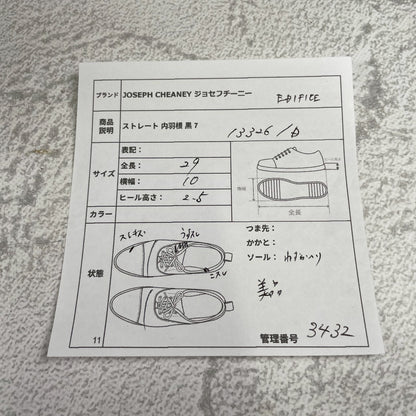 ブランド JOSEPH CHEANEY ジョセフチーニー EDIFICE
商品説明 ストレート 内羽根 黒 7 13326/D
サイズ
表記：
全長： 29
横幅： 10
ヒール高さ： 2.5
横幅
全長
カラー
状態
スレキズ
うすスレ
こスレ
つま先：
かかと：
ソール： わずかヘリ
美中
11
管理番号 3432